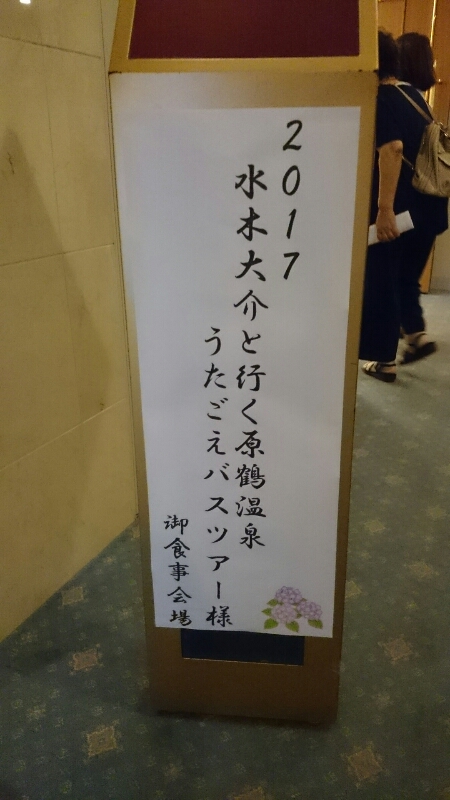 2017
水木大介と行く原鶴温泉
うたごえバスツアー様
御食事会場